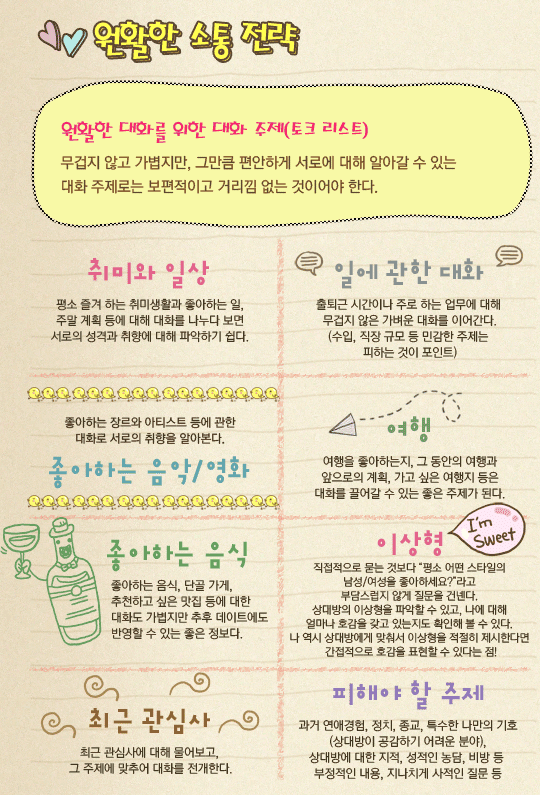 원활한 소통 전략
원활한 대화를 위한 대화 주제(토크 리스트)
무겁지 않고 가볍지만, 그만큼 편안하게 서로에 대해 알아갈 수 있는
대화 주제로는 보편적이고 거리낌 없는 것이어야 한다.
취미와 일상
평소 즐겨 하는 취미생활과 좋아하는 일,
주말 계획 등에 대해 대화를 나누다 보면
서로의 성격과 취향에 대해 파악하기 쉽다.
일에 관한 대화
출퇴근 시간이나 주로 하는 업무에 대해
무겁지 않은 가벼운 대화를 이어간다.
(수입, 직장 규모 등 민감한 주제는
피하는 것이 포인트)
좋아하는 장르와 아티스트 등에 관한
대화로 서로의 취향을 알아본다.
좋아하는 음악/영화
여행
여행을 좋아하는지, 그 동안의 여행과
앞으로의 계획, 가고 싶은 여행지 등은
대화를 끌어갈 수 있는 좋은 주제가 된다.
좋아하는 음식
좋아하는 음식, 단골 가게,
추천하고 싶은 맛집 등에 대한
대화도 가볍지만 추후 데이트에도
반영할 수 있는 좋은 정보다.
이상형
I'm
Sweet
직접적으로 묻는 것보다 "평소 어떤 스타일의
남성/여성을 좋아하세요?"라고
부담스럽지 않게 질문을 건넨다.
상대방의 이상형을 파악할 수 있고, 나에 대해
얼마나 호감을 갖고 있는지도 확인해 볼 수 있다.
나 역시 상대방에게 맞춰서 이상형을 적절히 제시한다면
간접적으로 호감을 표현할 수 있다는 점!
최근 관심사
최근 관심사에 대해 물어보고,
그 주제에 맞추어 대화를 전개한다.
피해야 할 주제
과거 연애경험, 정치, 종교, 특수한 나만의 기호
(상대방이 공감하기 어려운 분야),
상대방에 대한 지적, 성적인 농담, 비방 등
부정적인 내용, 지나치게 사적인 질문 등